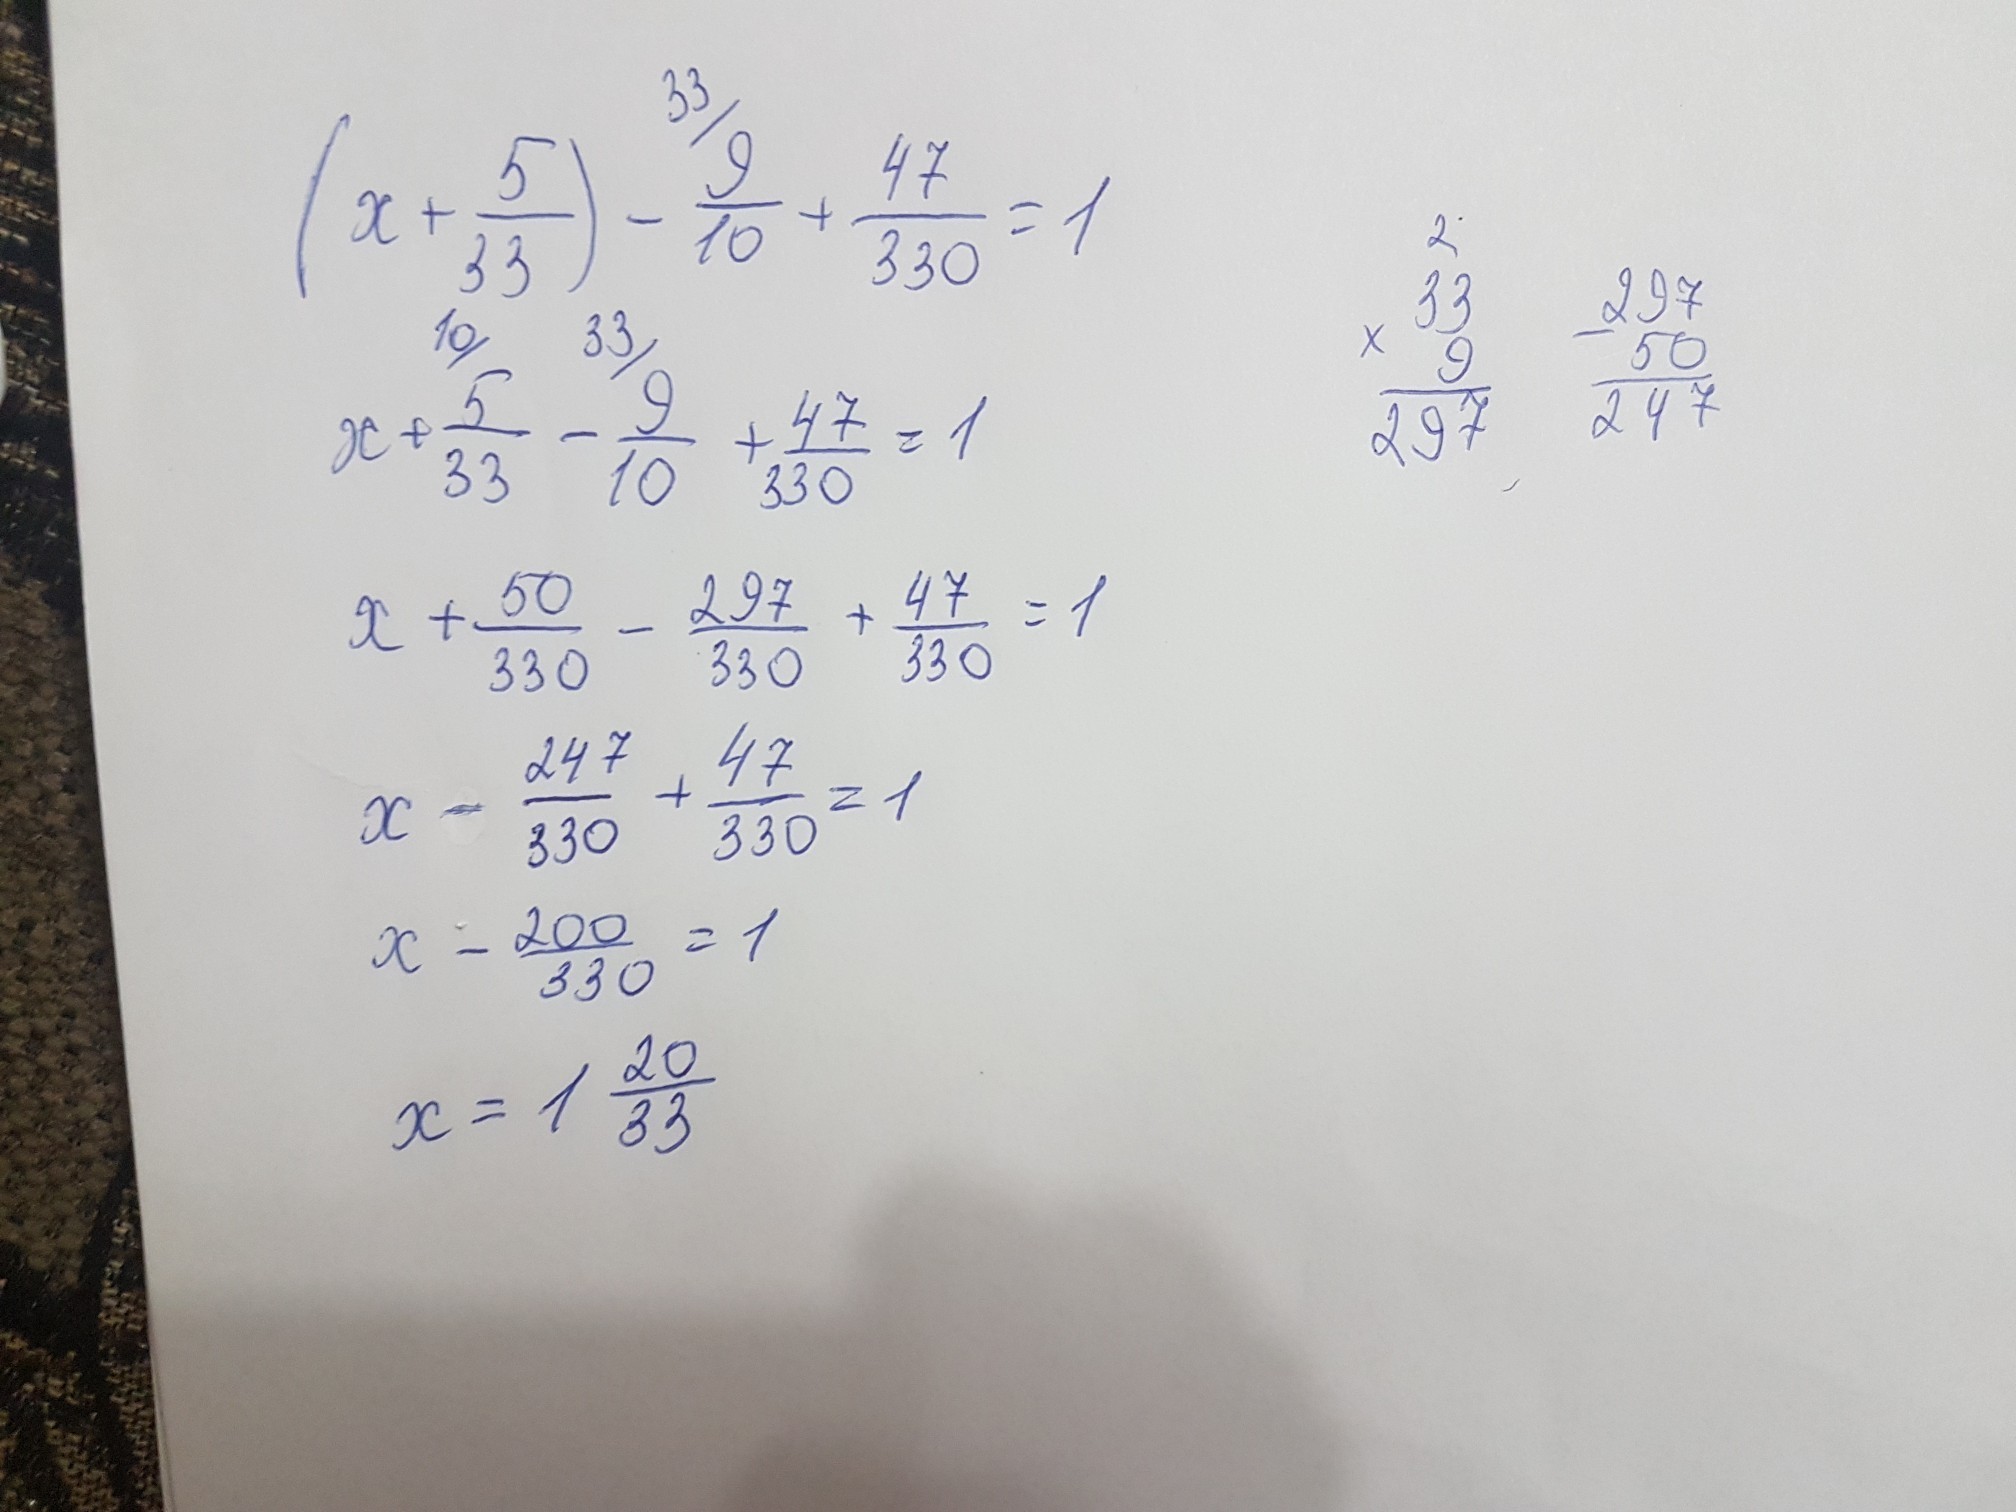 (x + 5/33) - 33/ 9/10 + 47/330 = 1
x + 10/ 5/33 - 33/ 9/10 + 47/330 = 1
x + 50/330 - 297/330 + 47/330 = 1
x - 247/330 + 47/330 = 1
x - 200/330 = 1
x = 1 20/33
2
33
x 9
297
297
- 50
247